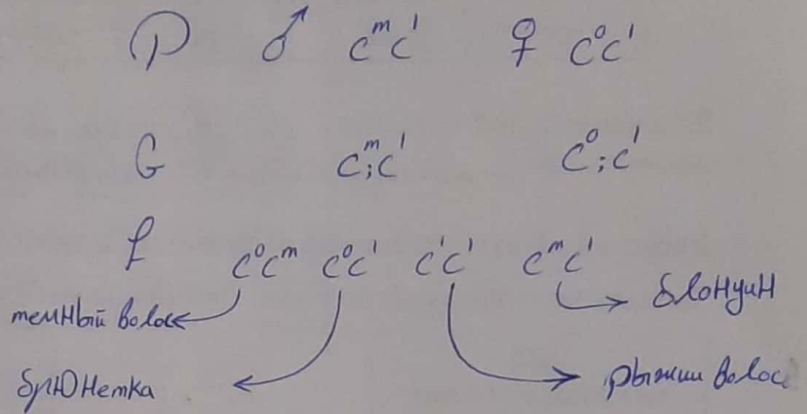 P ♂ cᵐc' ♀ c⁰c'
G cᵐ;c' c⁰;c'
f c⁰cᵐ c⁰c' c'c' cᵐc'
темный волос блонуин
брюнетка рыжии волос